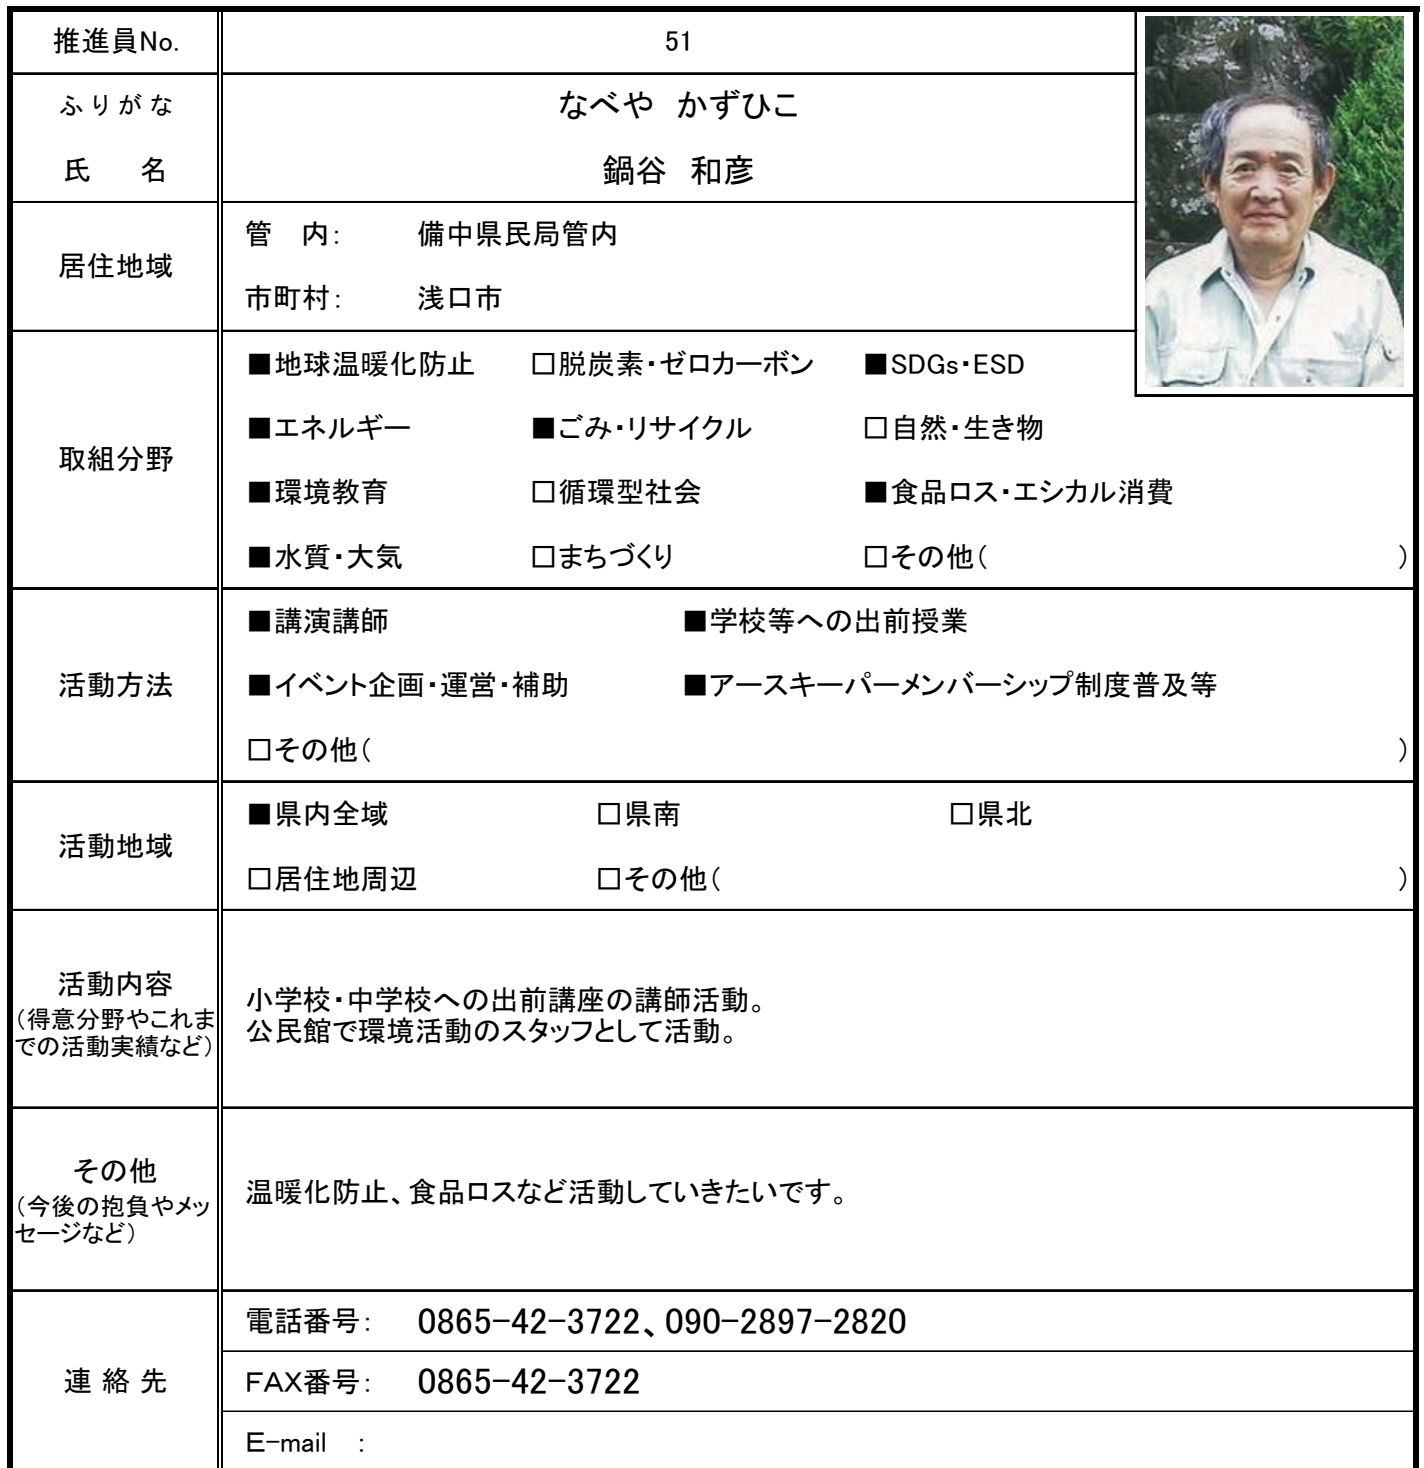 推進員No. 51
ふりがな なべや かずひこ
氏 名 鍋谷 和彦
居住地域
管 内： 備中県民局管内
市町村： 浅口市
取組分野
■地球温暖化防止 □脱炭素・ゼロカーボン ■SDGs・ESD
■エネルギー ■ごみ・リサイクル □自然・生き物
■環境教育 □循環型社会 ■食品ロス・エシカル消費
■水質・大気 □まちづくり □その他（ ）
活動方法
■講演講師 ■学校等への出前授業
■イベント企画・運営・補助 ■アースキーパーメンバーシップ制度普及等
□その他（ ）
活動地域
■県内全域 □県南 □県北
□居住地周辺 □その他（ ）
活動内容
（得意分野やこれま
での活動実績など）
小学校・中学校への出前講座の講師活動。
公民館で環境活動のスタッフとして活動。
その他
（今後の抱負やメッ
セージなど）
温暖化防止、食品ロスなど活動していきたいです。
連絡先
電話番号： 0865-42-3722、090-2897-2820
FAX番号： 0865-42-3722
E-mail ：